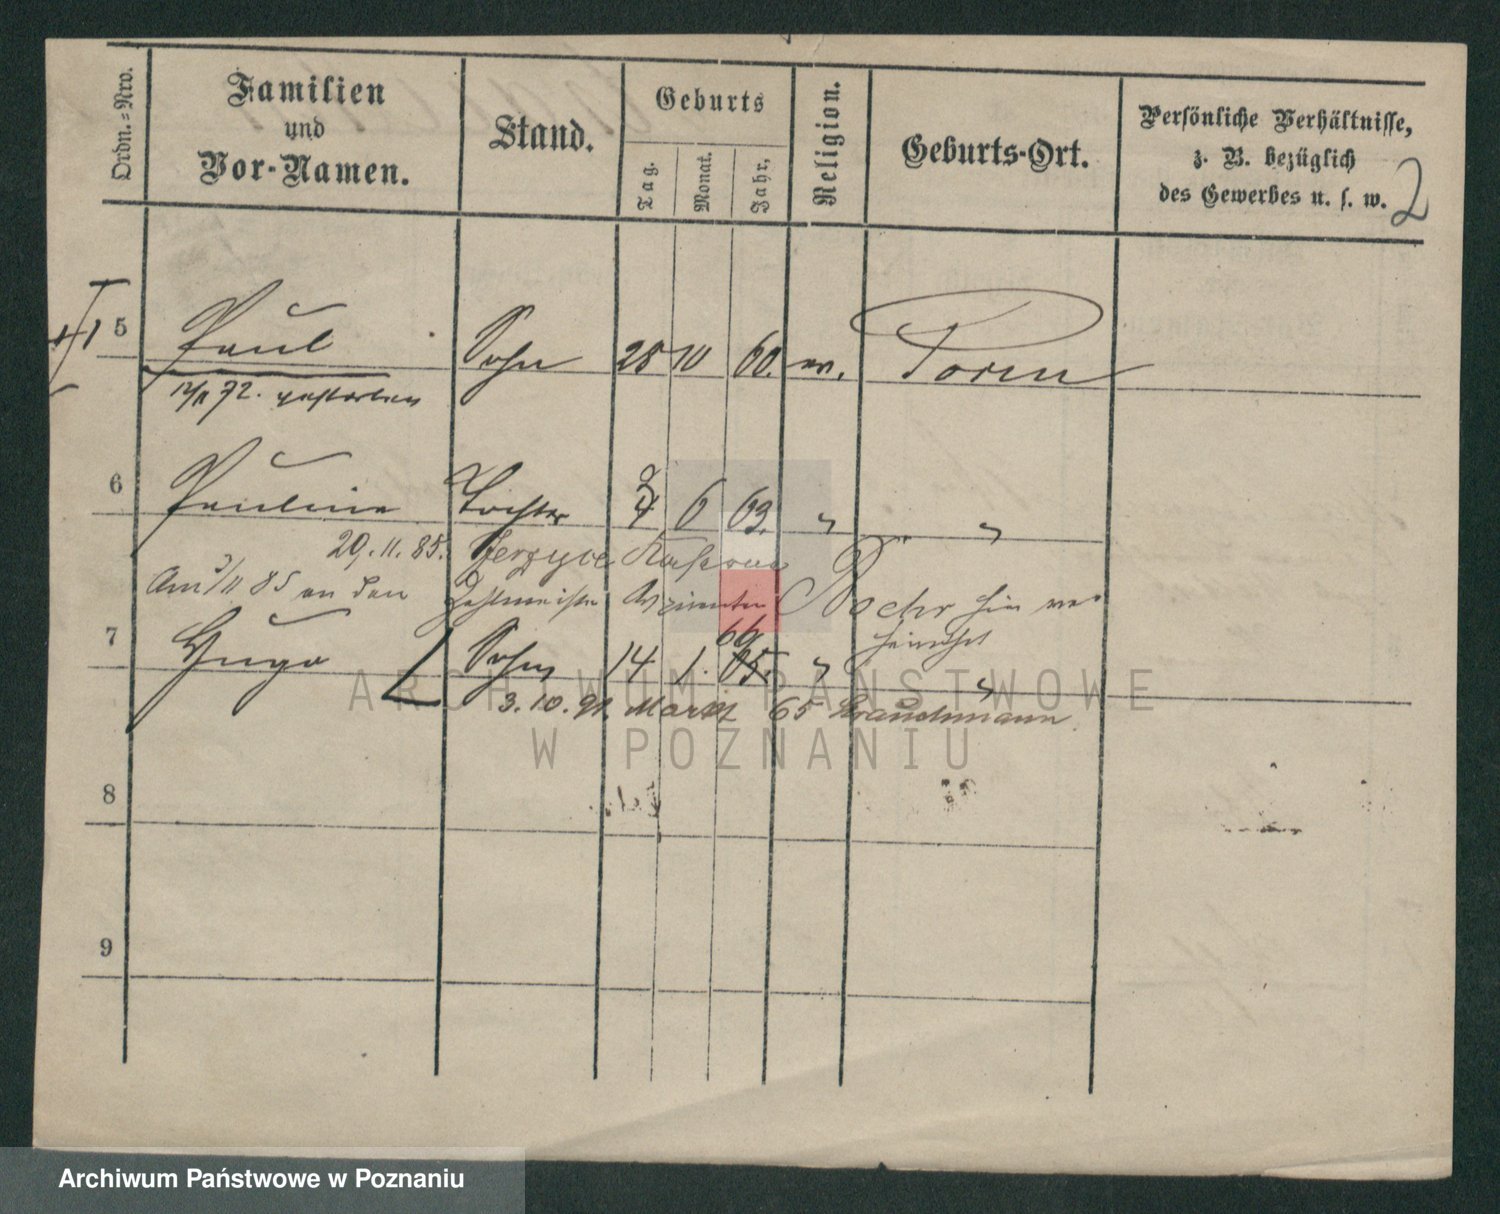 Ordn.=Nro.
Familien
und
Vor-Namen.
Stand.
Geburts
Tag.
Monat.
Jahr,
Religion.
Geburts-Ort.
Persönliche Verhältnisse,
z. B. bezüglich
des Gewerbes u. s. w.
2
5 Paul Sohn 28 10 60. ev. Posen
72. gestorben
6 Pauline Tochter 6 63. " "
29.11.85. Jerzyce
Am 3/11 85 an den Zahlmeister Aspiranten hier ver
heirathet
7 Hugo Sohn 14 1. 66 65. " "
3.10.91. Markt 65 Brauchmann
8
9
ARCHIWUM PAŃSTWOWE
W POZNANIU
Archiwum Państwowe w Poznaniu